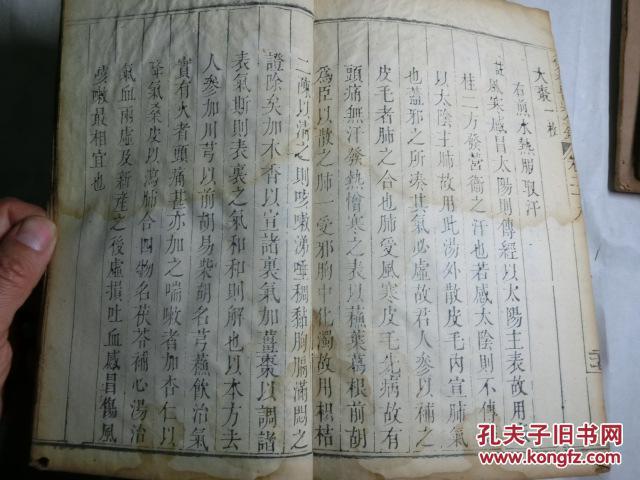 大棗一枚
右煎水熱服取汗
風寒感冒太陽則傳經以太陽主表故用
桂二方發營衛之汗也若感太陰則不傳
以太陰主肺故用此湯外散皮毛內宣肺氣
也蓋邪之所湊其氣必虛故君人參以補之
皮毛者肺之合也肺受風寒皮毛先病故有
頭痛無汗發熱憎寒之表以蘇葉葛根前胡
為臣以散之肺一受邪胸中化濁故用枳桔
二陳以清之則咳嗽涕唾稠黏胸膈滿悶之
證除矣加木香以宣諸裏氣加薑棗以調諸
表氣斯則表裏之氣和和則解也以本方去
人參加川芎以前胡易柴胡名芎蘇飲治氣
實有火者頭痛甚亦加之喘嗽者加杏仁以
降氣桑皮以瀉肺合四物名茯苓補心湯治
氣血兩虛及新產之後虛損吐血感冒傷風
咳嗽最相宜也
孔夫子旧书网
www.kongfz.com